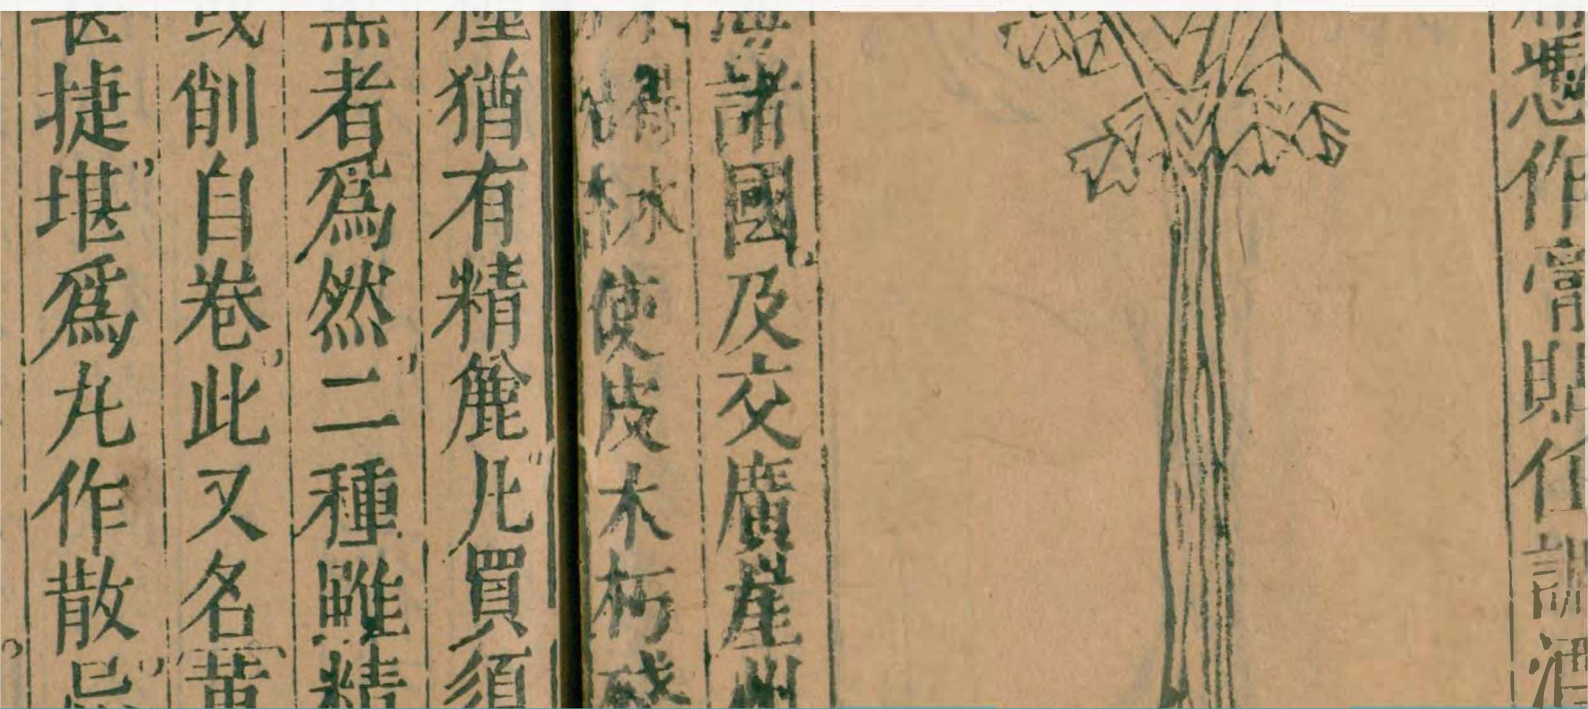 作膏貼任調酒
海諸國及交廣崖州
使皮木朽殘
種猶有精麄凡買須
黑者爲然二種雖精
或削自卷此又名黃
甚捷堪爲丸作散忌